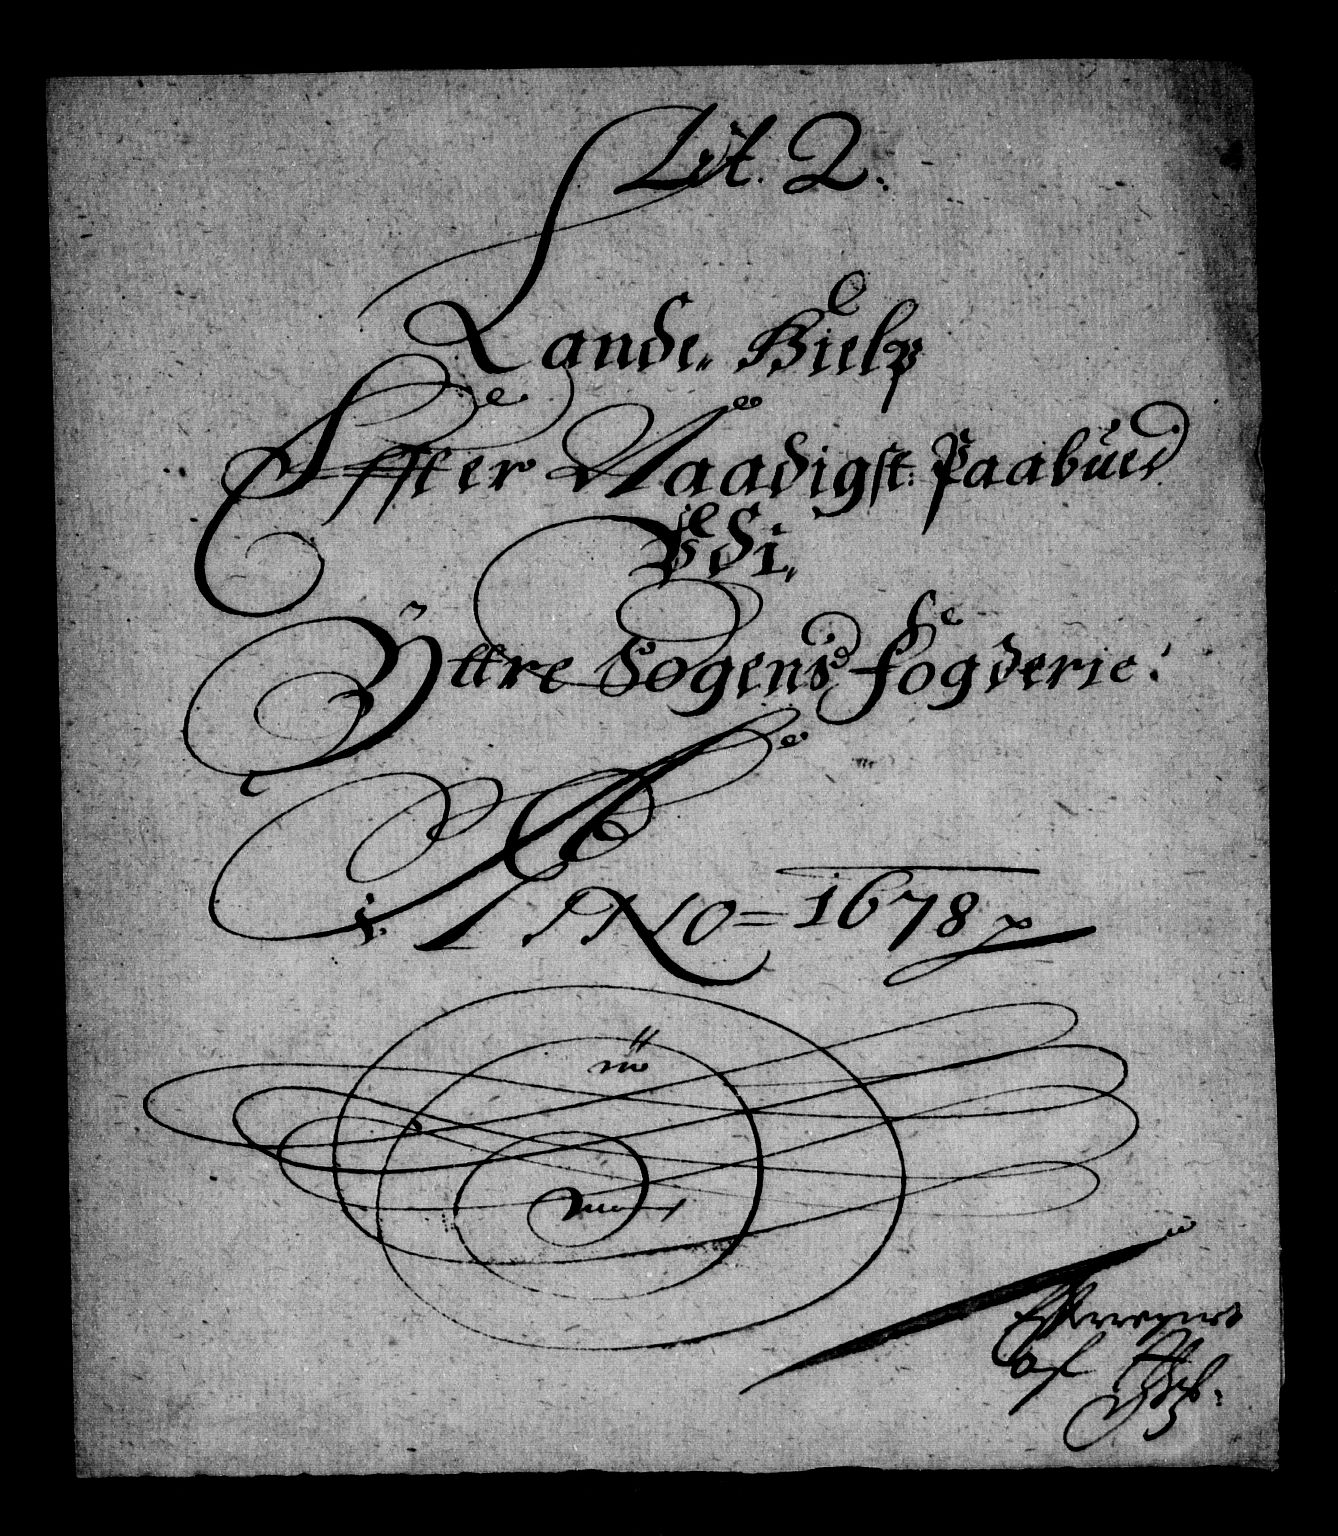 Lit. Q.
Lande Hielp
Effter Naadigst Paabued
Udi
Yttre Sogens Fogderie:
ANNO = 1678
af